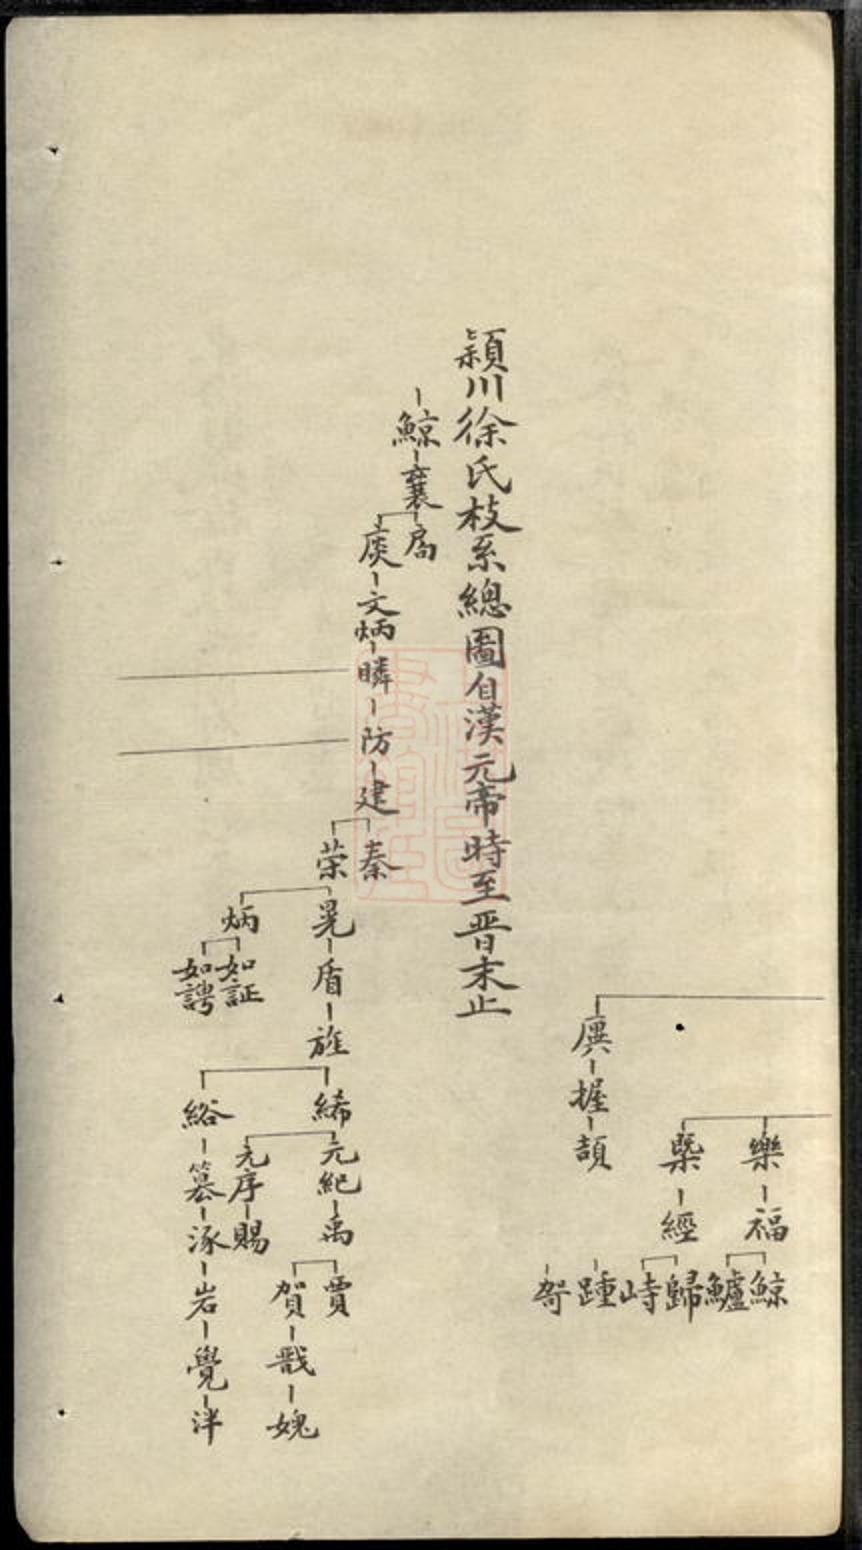 樂
福
鯨
鱸
槩
經
歸
峙
㢓
握
頡
踵
哿
穎川徐氏枝系總圖自漢元帝時至晋末止
鯨
襄
扄
庱
文炳
瞵
防
建
秦
荣
晃
盾
旌
炳
如証
如聘
絺
元紀
禹
賈
賀
戬
媿
元序
賜
綌
篡
涿
岩
覺
泮